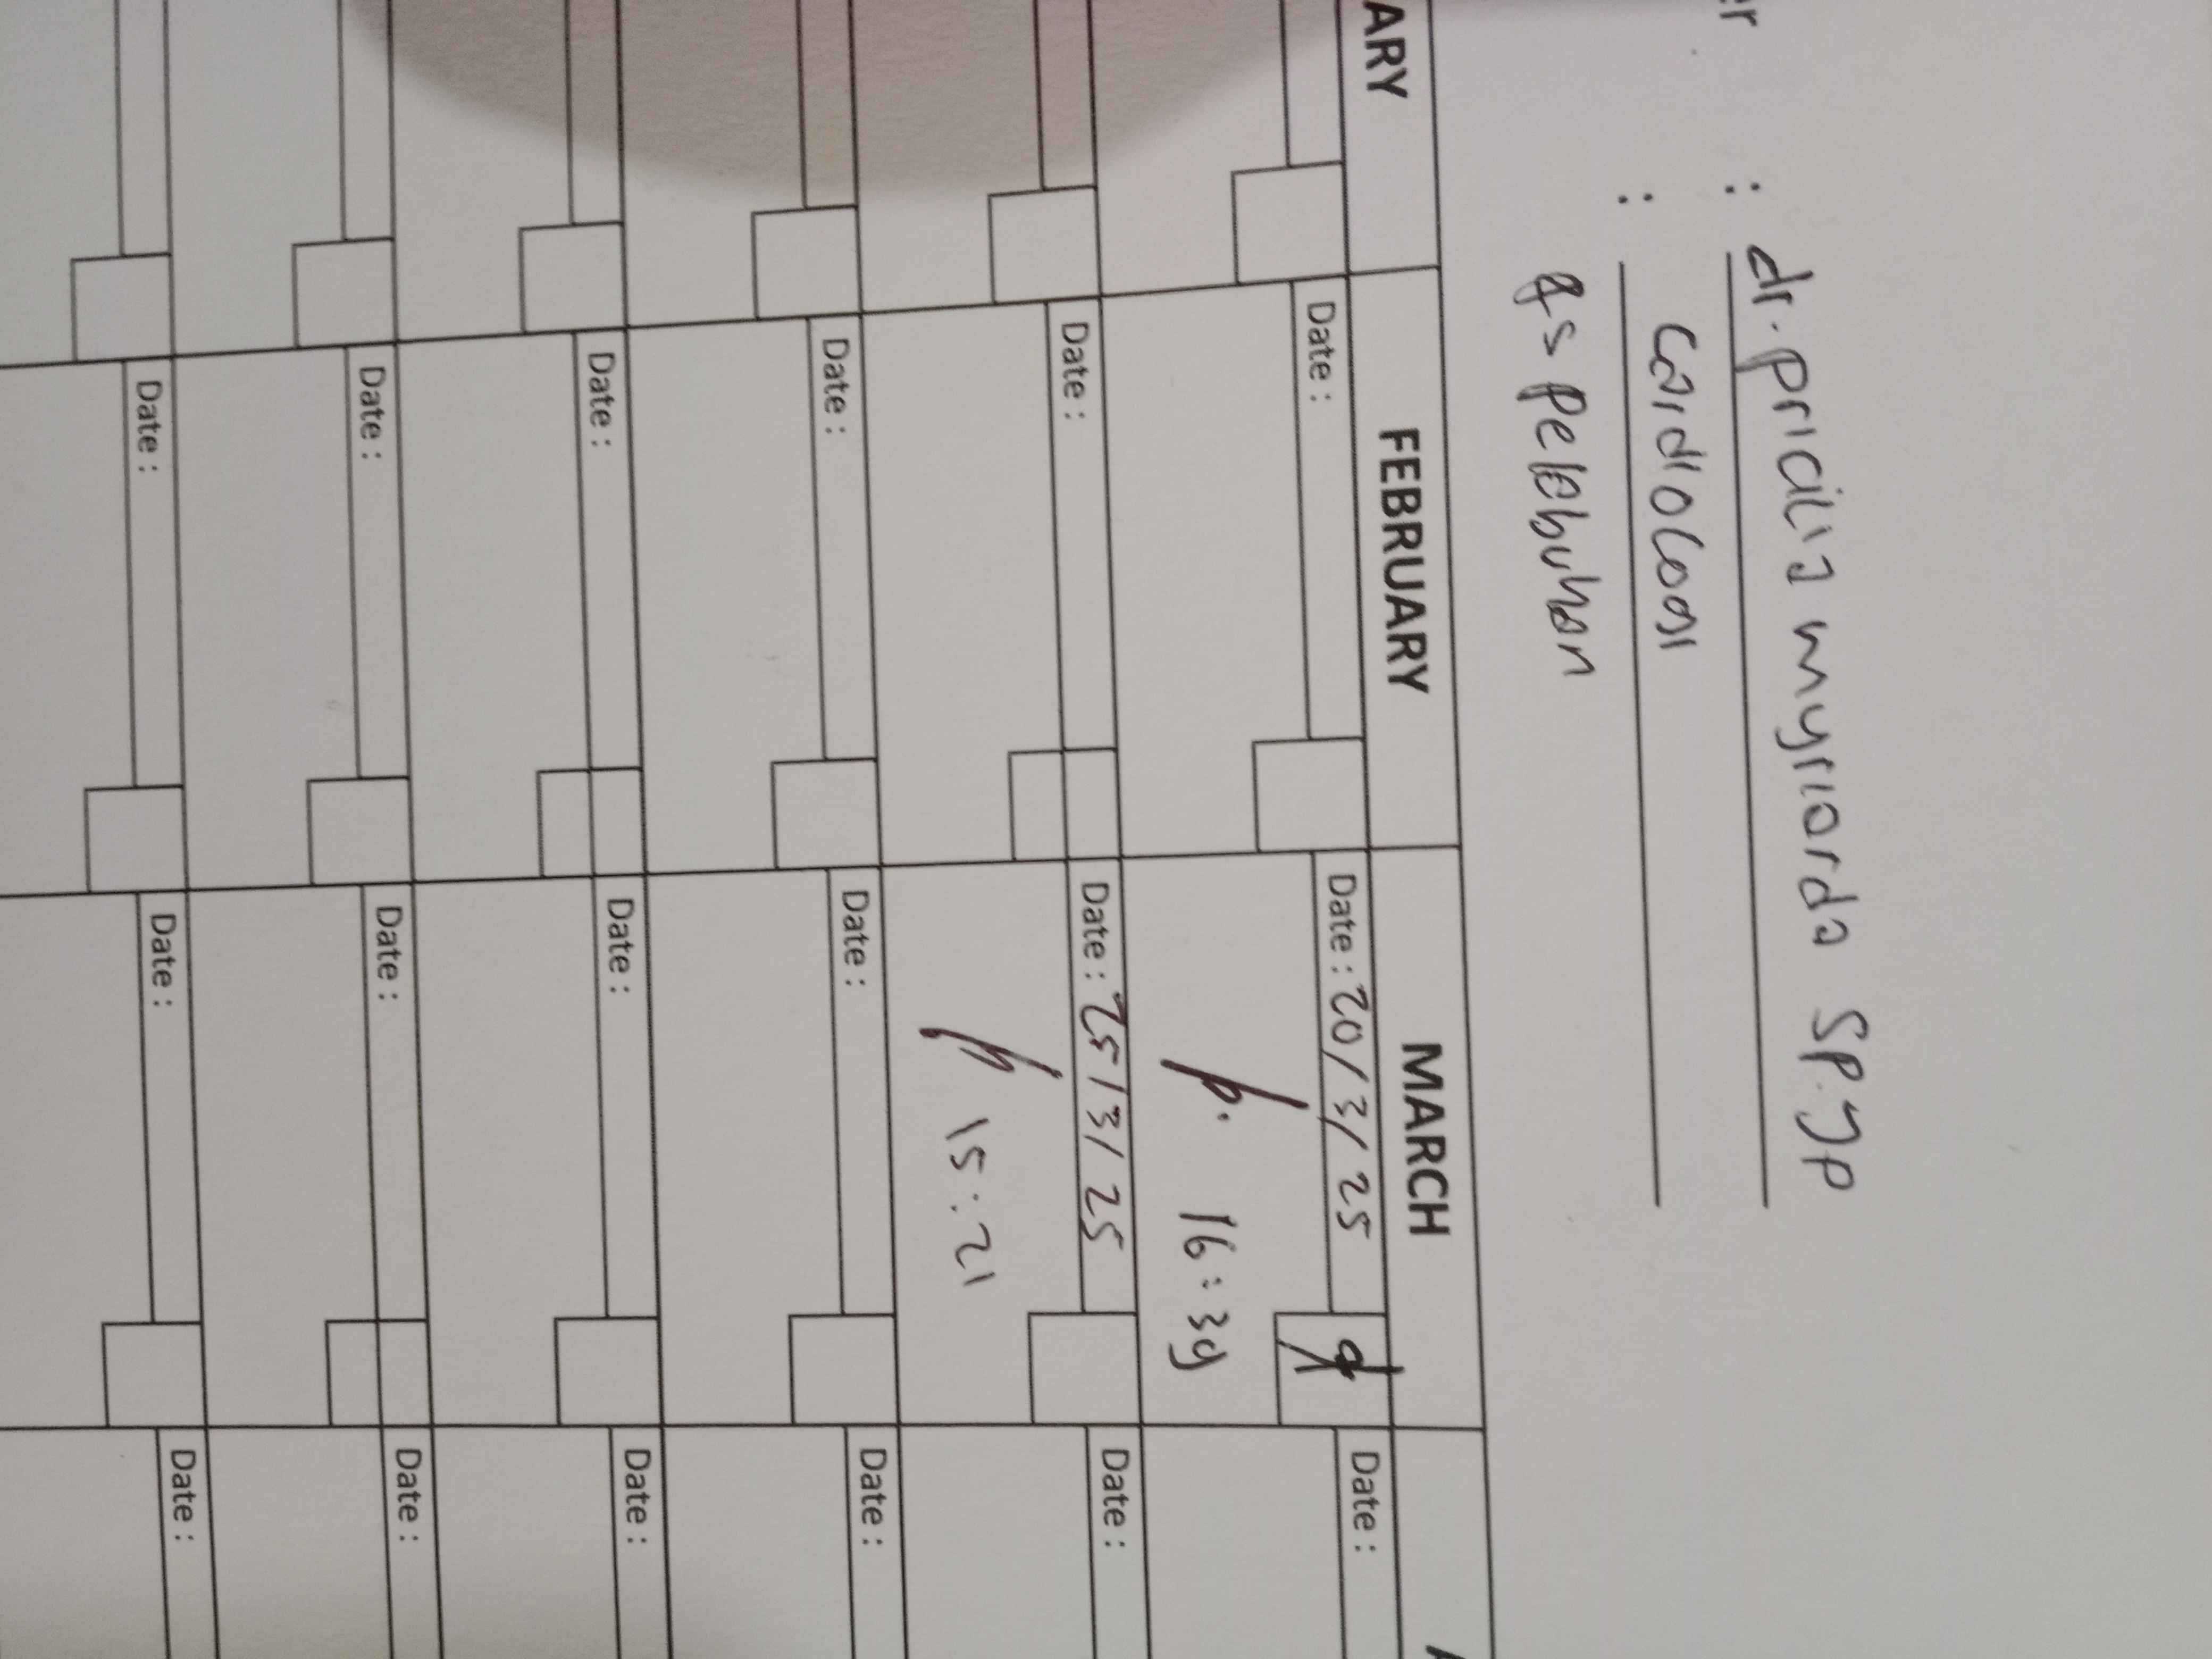 er : dr. pricilia myriarda SP.JP
: Cardiologi
RS Pelabuhan
ARY FEBRUARY MARCH
Date : Date : 20/3/25 Date :
16:39
Date : Date : 25/3/25 Date :
15:21
Date : Date : Date :
Date : Date : Date :
Date : Date : Date :
Date : Date : Date :